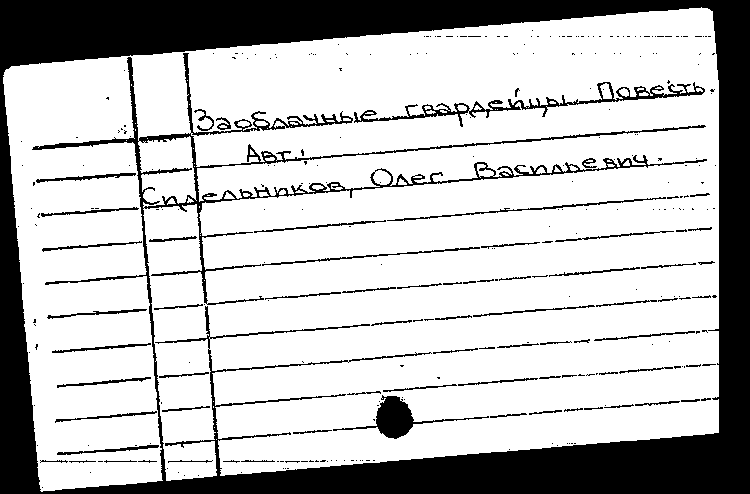 Заоблачные гвардейцы. Повесть.
Авт.:
Сидельников, Олег Васильевич.